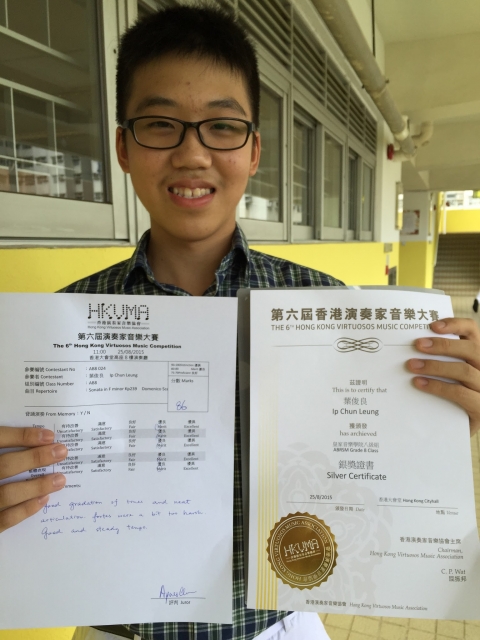 HKUMA
香港演奏家音樂協會
Hong Kong Virtuosos Music Association
第六屆香港演奏家音樂大賽
The 6th Hong Kong Virtuosos Music Competition
11:00 25/08/2015
參賽編號 Contestant No. : ABR 024
參賽者 Contestant : 葉俊良 Ip Chun Leung
組別編號 Class Number : ABR
曲目 Repertoire : Sonata in F minor Kp239 Domenico
分數 Marks
86
From Memory ( Y / N
Satisfactory Fair Merit Excellent
Satisfactory Fair Merit Excellent
Satisfactory Fair Merit Excellent
Satisfactory Fair Merit Excellent
Good gradation of tones and neat
articulation fortes were a bit too harsh
Good and steady tempo
第六屆香港演奏家音樂大賽
THE 6TH HONG KONG VIRTUOSOS MUSIC COMPETITION
茲證明
This is to certify that
葉俊良
Ip Chun Leung
獲頒發
has archieved
ABRSM Grade 6 Class
銀獎證書
Silver Certificate
25/8/2015
香港大會堂 Hong Kong Cityhall
地點 Venue
HKUMA
香港演奏家音樂協會主席
Chairman,
Hong Kong Virtuosos Music Association
C. P. Wai
香港演奏家音樂協會 Hong Kong Virtuosos Music Association